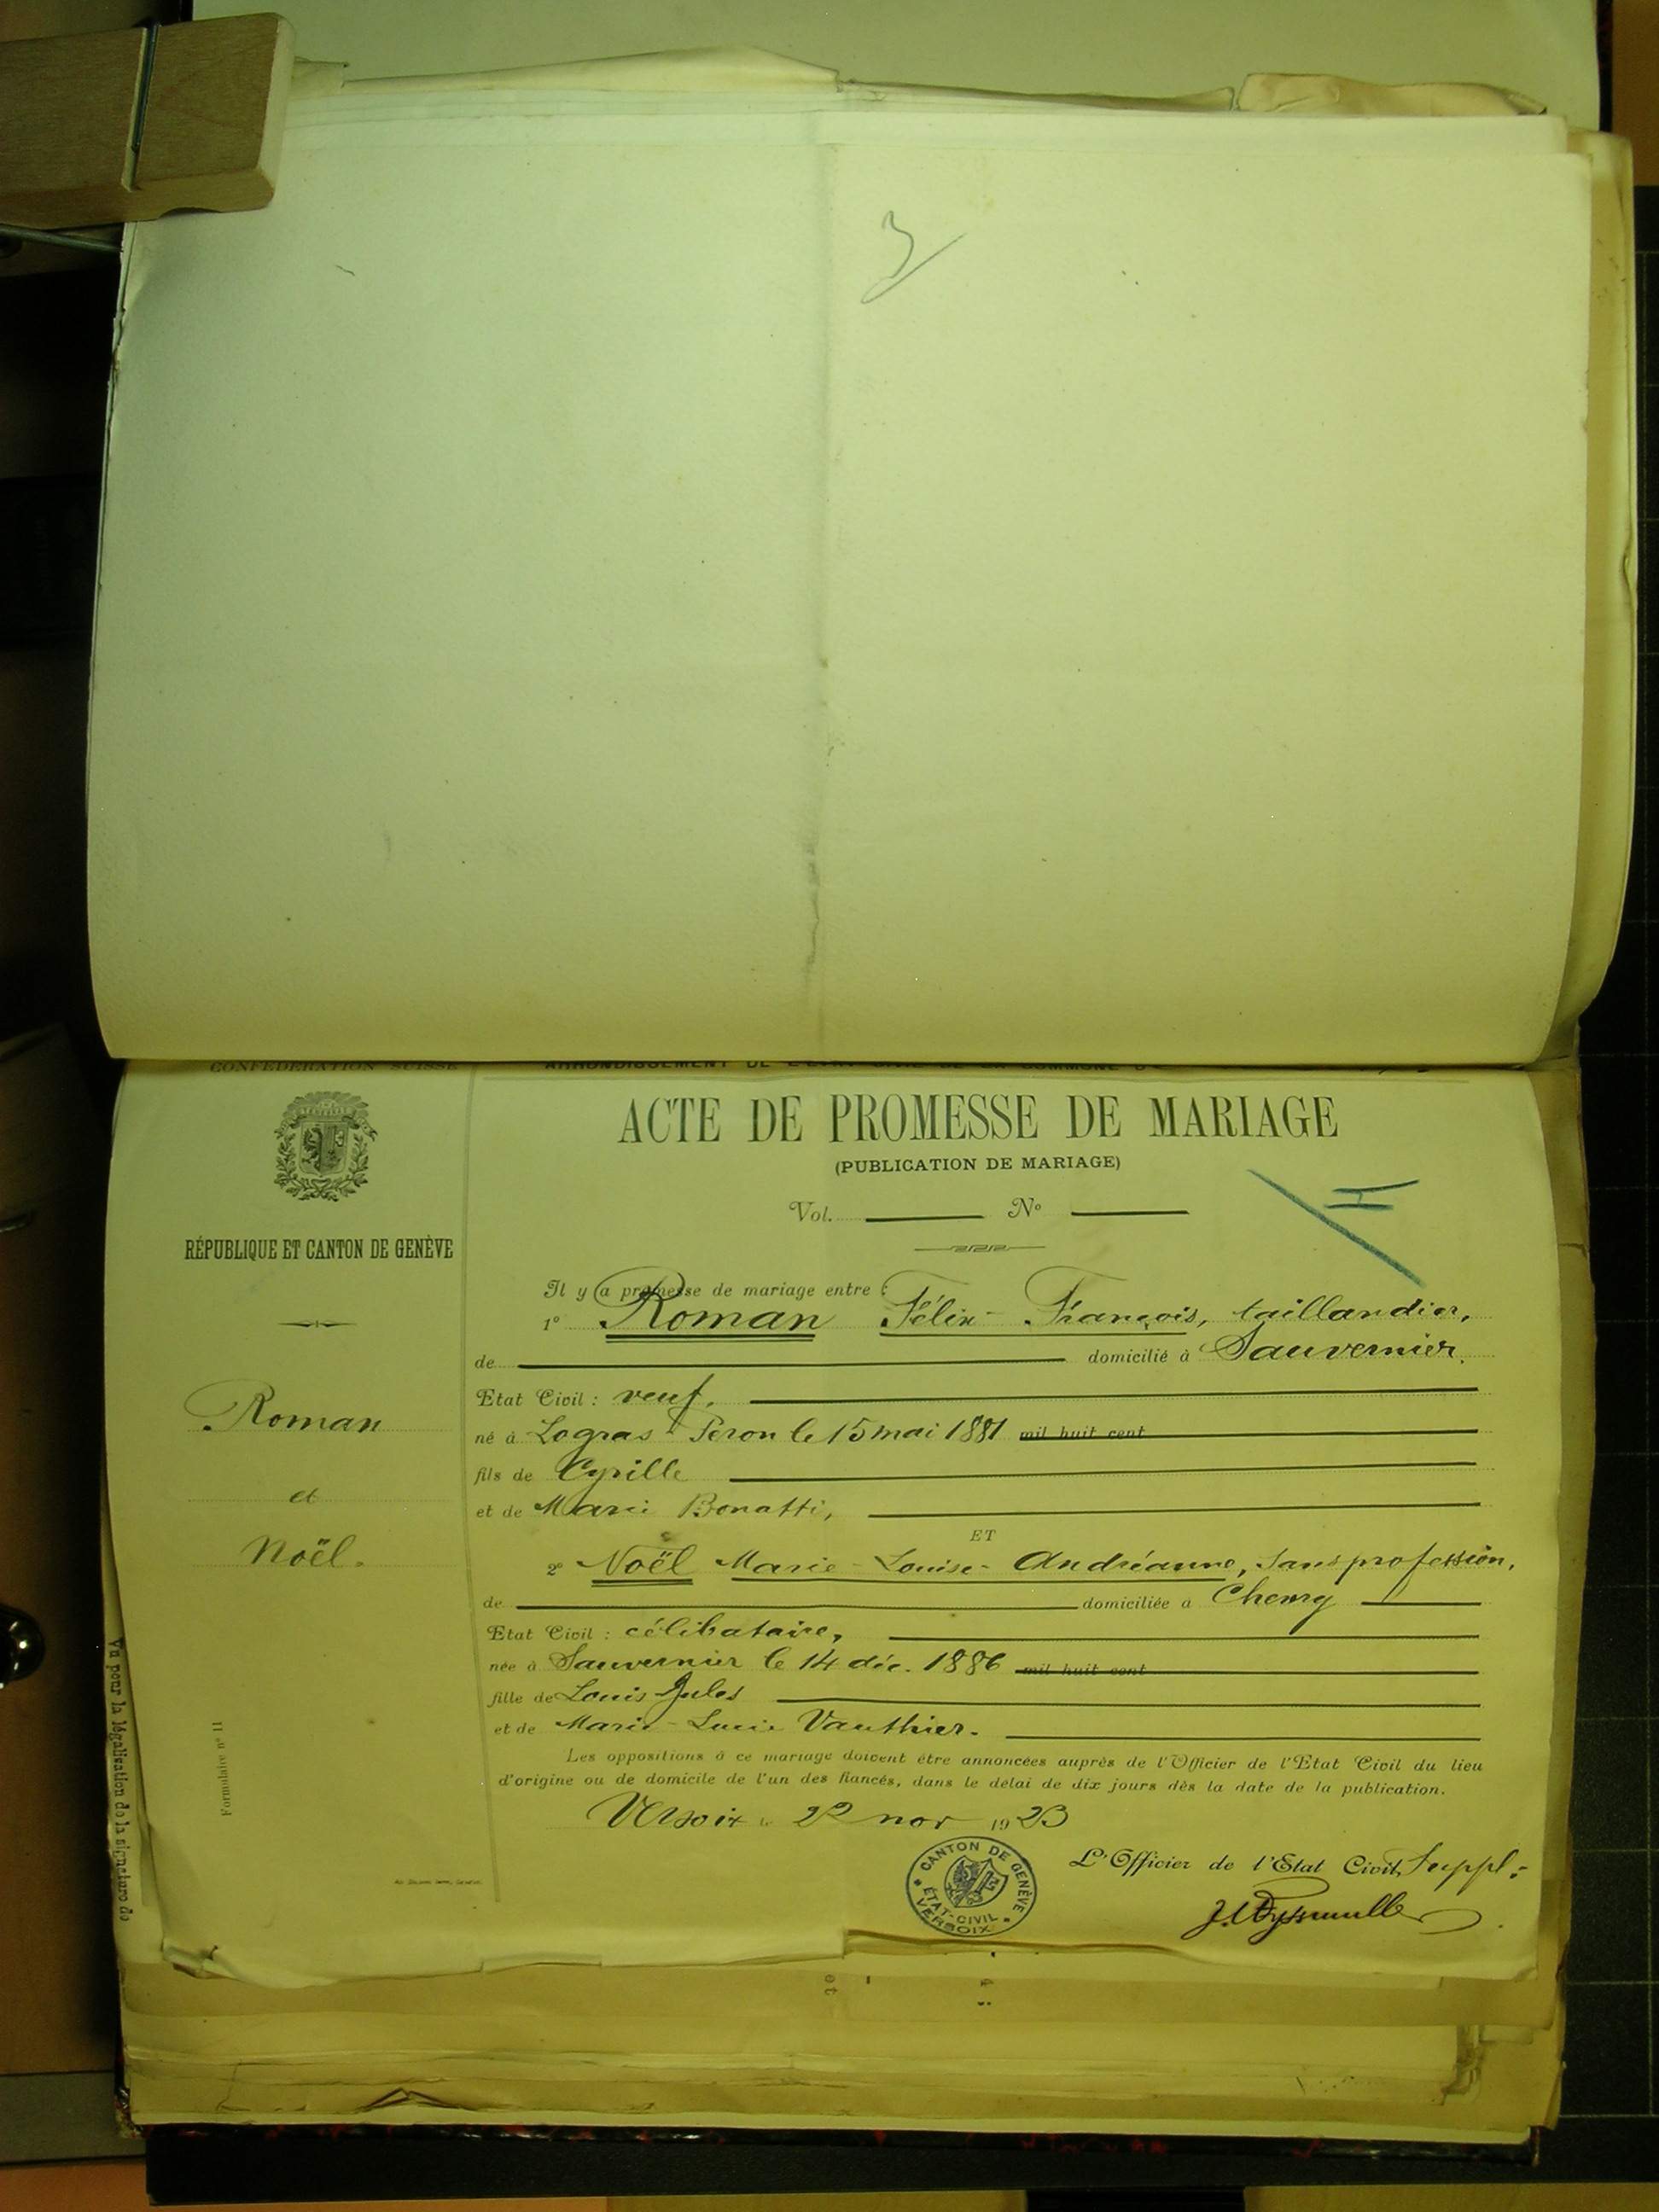 3
CONFÉDÉRATION SUISSE
ARRONDISSEMENT DE L'ÉTAT CIVIL DE LA COMMUNE
RÉPUBLIQUE ET CANTON DE GENÈVE
Roman
et
Noël.
Formulaire nº 11
ACTE DE PROMESSE DE MARIAGE
(PUBLICATION DE MARIAGE)
Vol. Nº
Il y a promesse de mariage entre :
1º Roman Félix-François, taillandier,
de domicilié à Sauvernier.
Etat Civil : veuf.
né à Logras-Péron le 15 mai 1881 mil huit cent
fils de Cyrille
et de Marie Bonatti,
ET
2º Noël Marie-Louise-Andréanne, sans profession,
de domiciliée à Chevry
Etat Civil : célibataire,
née à Sauvernier le 14 déc. 1886 mil huit cent
fille de Louis Jules
et de Marie-Lucie Vauthier.
Les oppositions à ce mariage doivent être annoncées auprès de l'Officier de l'Etat Civil du lieu
d'origine ou de domicile de l'un des fiancés, dans le délai de dix jours dès la date de la publication.
Versoix le 22 nov 1923
L'Officier de l'Etat Civil, Suppl:
CANTON DE GENÈVE
ÉTAT-CIVIL
VERSOIX
Vu pour la légalisation de la signature de
et